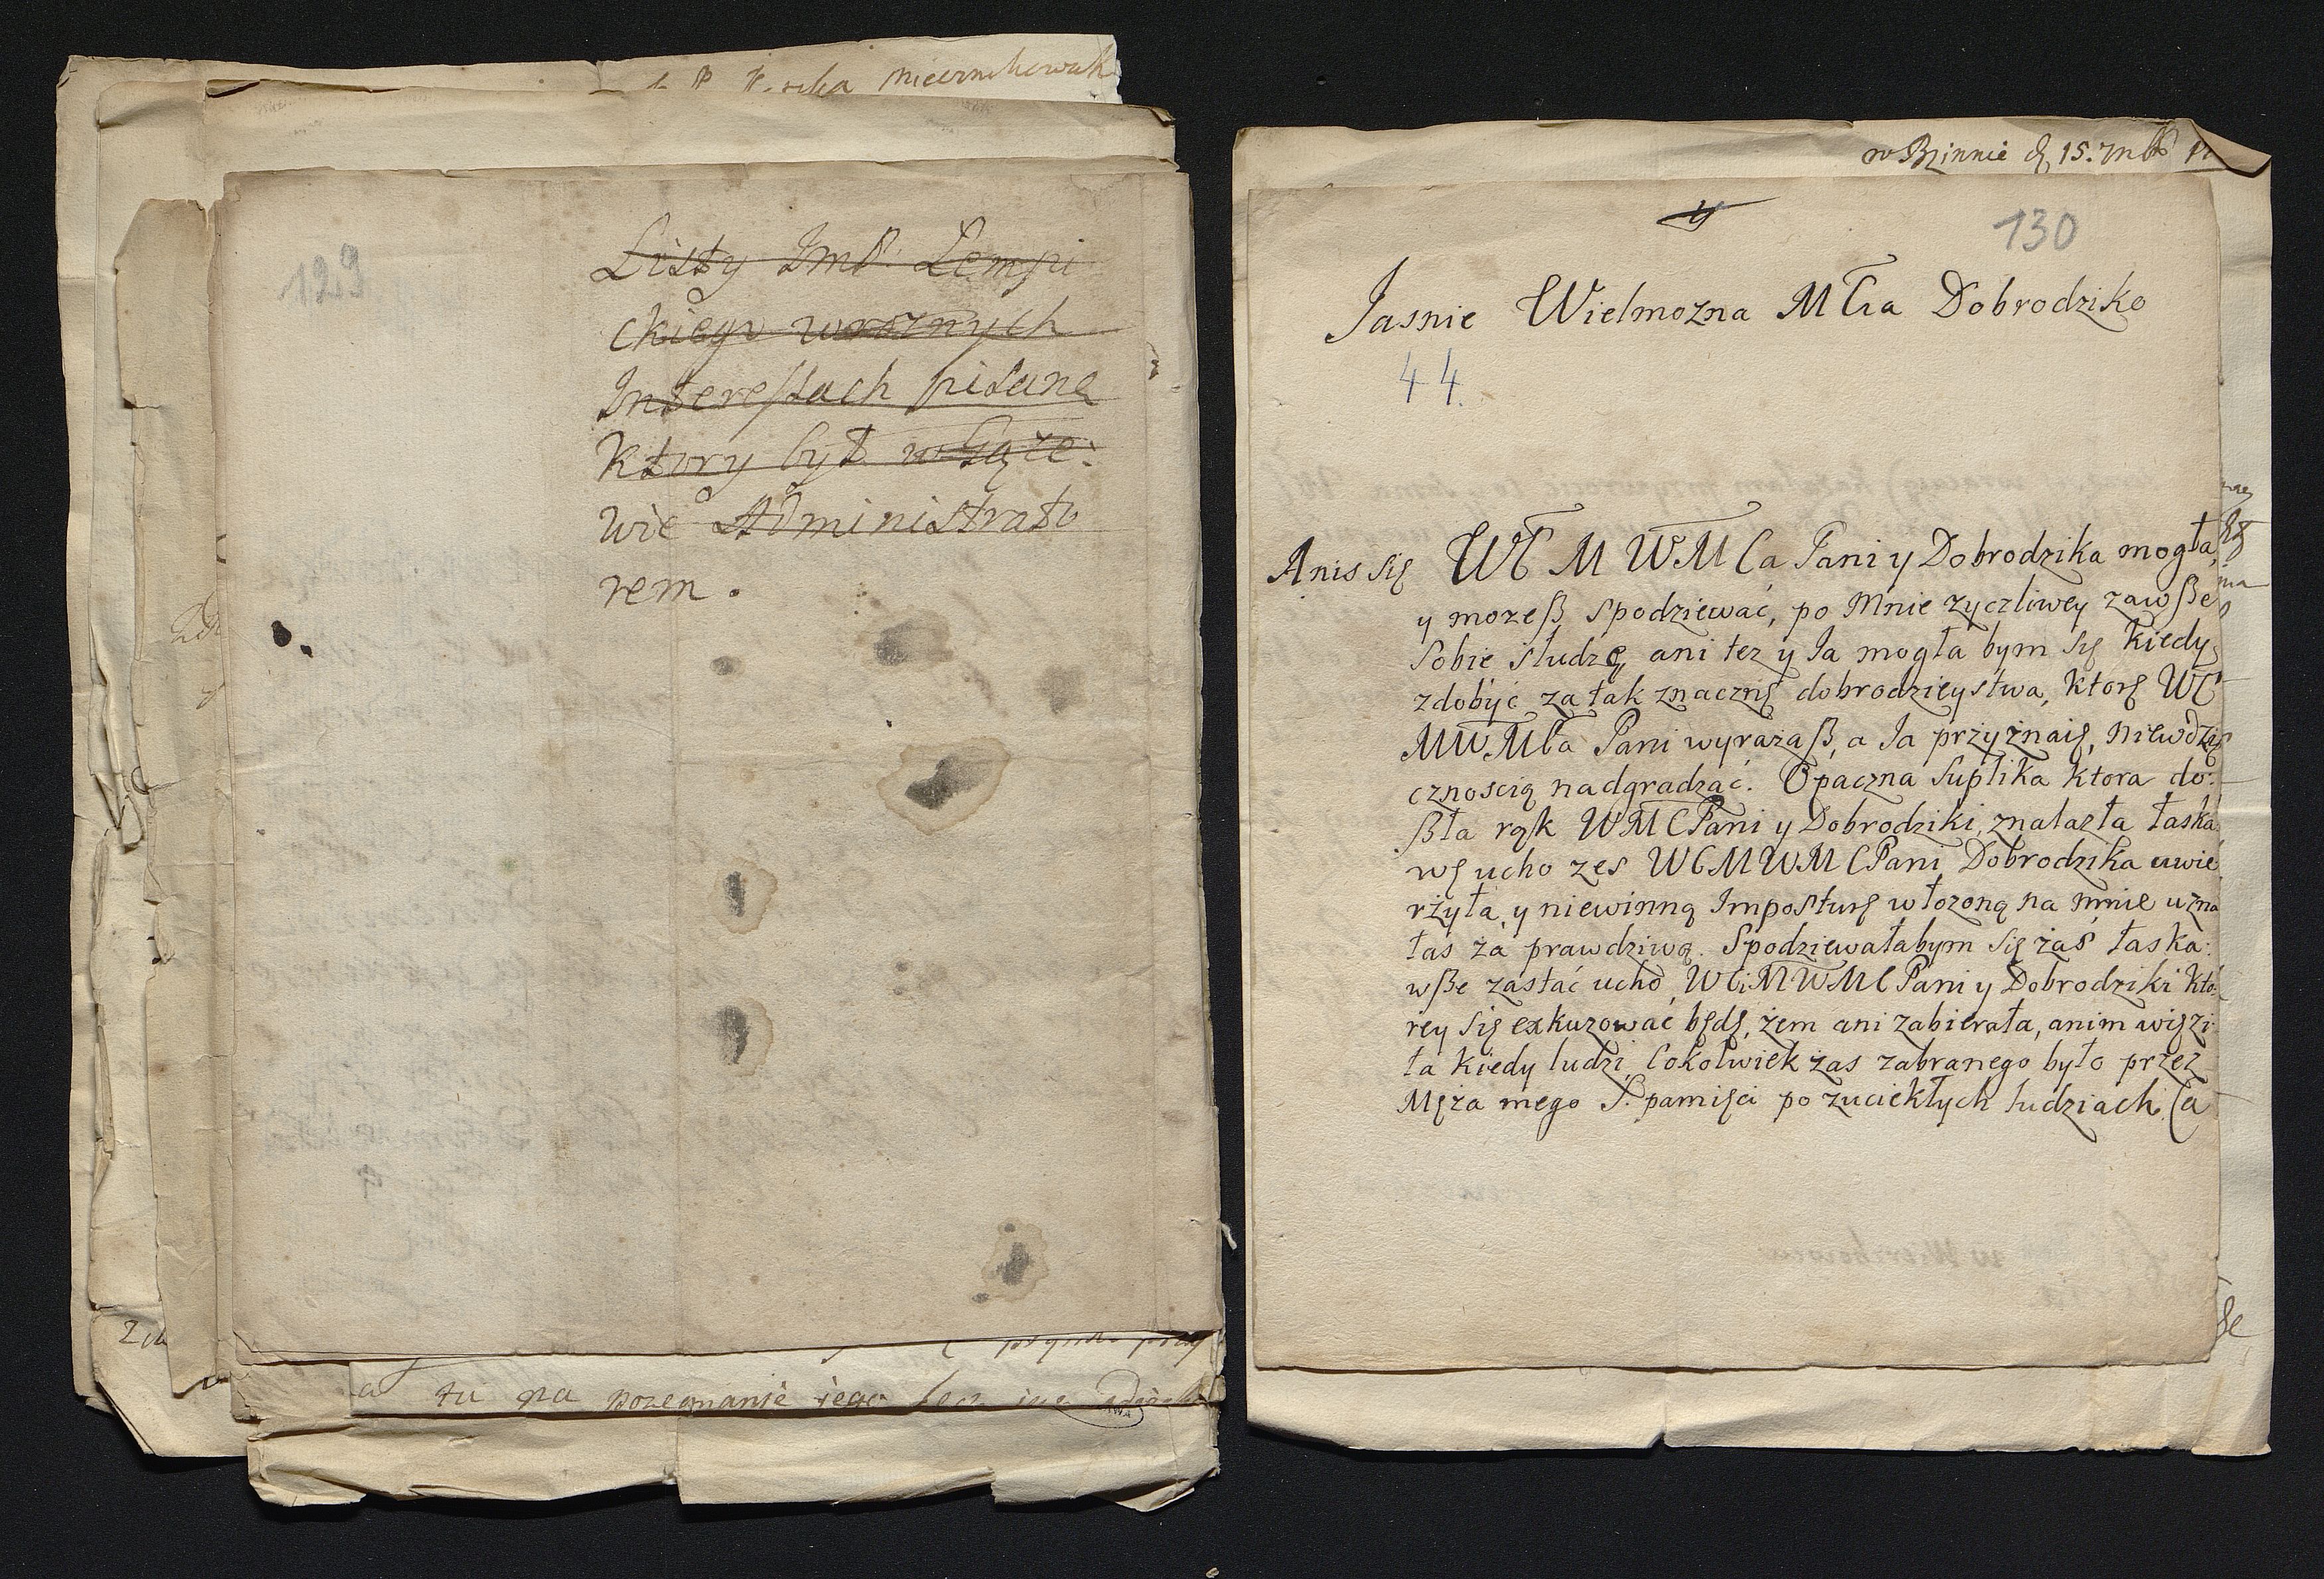 129
Listy Jmp. Lempi
ckiego w roznych
Interessach pisane
Ktory był w Gąże:
wie Administrato
rem.
tu na pozegnanie iego
w Rzinnie d 15. 7nbr
130
Jasnie Wielmozna M Cia Dobrodziko
44.
Anis się WC M WM Ca Pani y Dobrodzika mogła,
y mozeß spodziewać, po Mnie zyczliwey zawßе
sobie słudze, ani tez y Ja mogła bym się kiedy
zdobyć za tak znacznę dobrodzieystwa, ktorę WC
MWMCa Pani wyrazaß, a Ja przyznaię, niewdzię
cznoscią nadgradzać. Opaczna suplika ktora do:
ßła rąk WMCPani y Dobrodziki, znalazła łaska
wę ucho zes WCMWMCPani Dobrodzika uwie
rzyła, y niewinną Imposturę włozoną na mnie uzna
łas za prawdziwą. Spodziewałabym się zaś łaska:
wßе zastać ucho, WCiMWMCPani y Dobrodziki kto:
rey się exkuzować będę, żem ani zabierała, anim więzi
ła kiedy ludzi, Cokolwiek zas zabranego było przez
Męza mego S. pamięci po zuciekłych ludziach, Ca